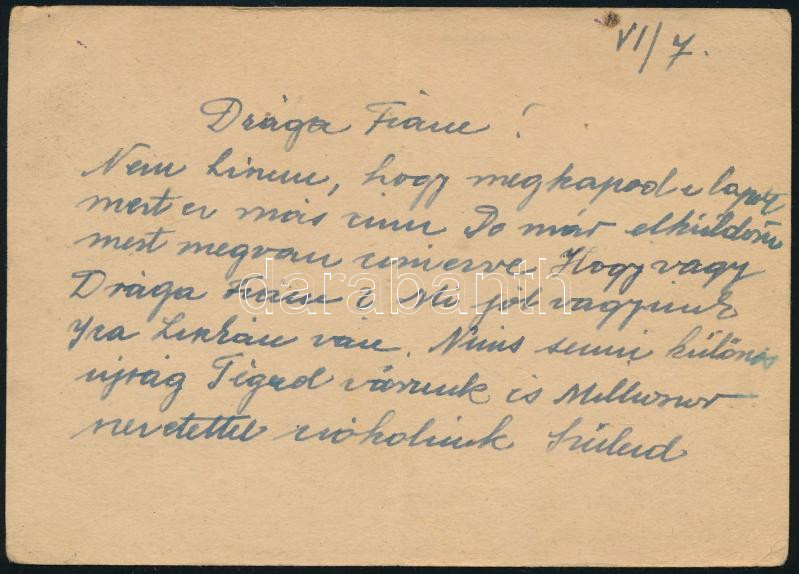 VI/7.
Drága Fiam!
Nem hinem, hogy megkapod e lapot
mert ez más cim De már elküldöm
mert megvan cimezve Hogy vagy
Drága Fiam? Mi jól vagyunk
van. Nincs semmi különös
ujság Téged várunk és Milliomor
szeretettel csókolunk Szüleid
darabanth.com